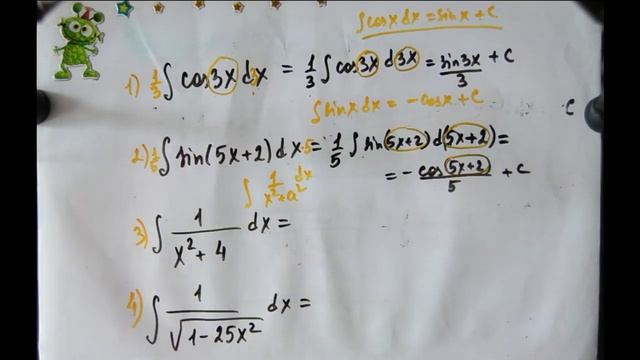 ∫cosx dx = sinx + C
1) 1/3 ∫ cos3x dx·3 = 1/3 ∫ cos3x d3x = sin3x/3 + C
∫ sinx dx = -cosx + C
C
2) 1/5 ∫ sin(5x+2) dx·5 = 1/5 ∫ sin(5x+2) d(5x+2) =
= - cos(5x+2)/5 + C
∫ 1/(x²+a²) dx
3) ∫ 1/(x²+4) dx =
4) ∫ 1/√(1-25x²) dx =